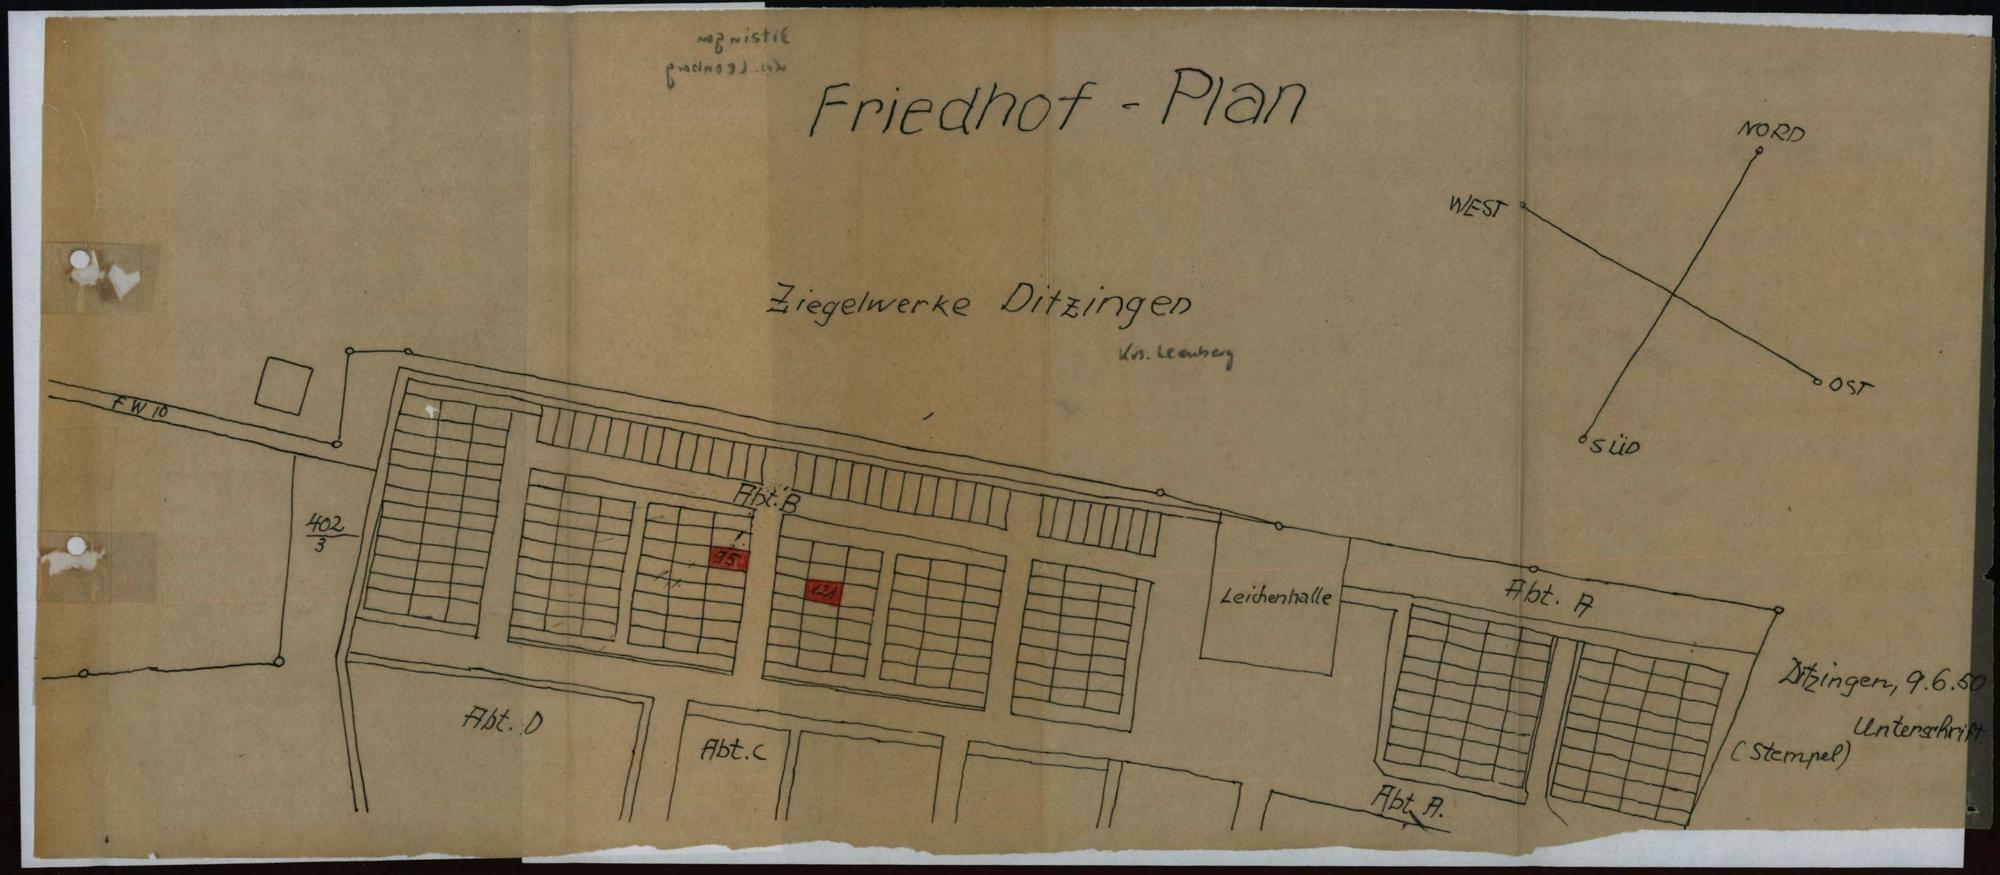 Ditzingen
Krs. Leonberg
Friedhof - Plan
NORD
WEST
OST
SÜD
Ziegelwerke Ditzingen
Krs. Leonberg
FW 10
402
3
Abt. B
95
121
Leichenhalle
Abt. A
Abt. D
Abt. C
Abt. A.
Ditzingen, 9.6.50
Unterschrift
(Stempel)